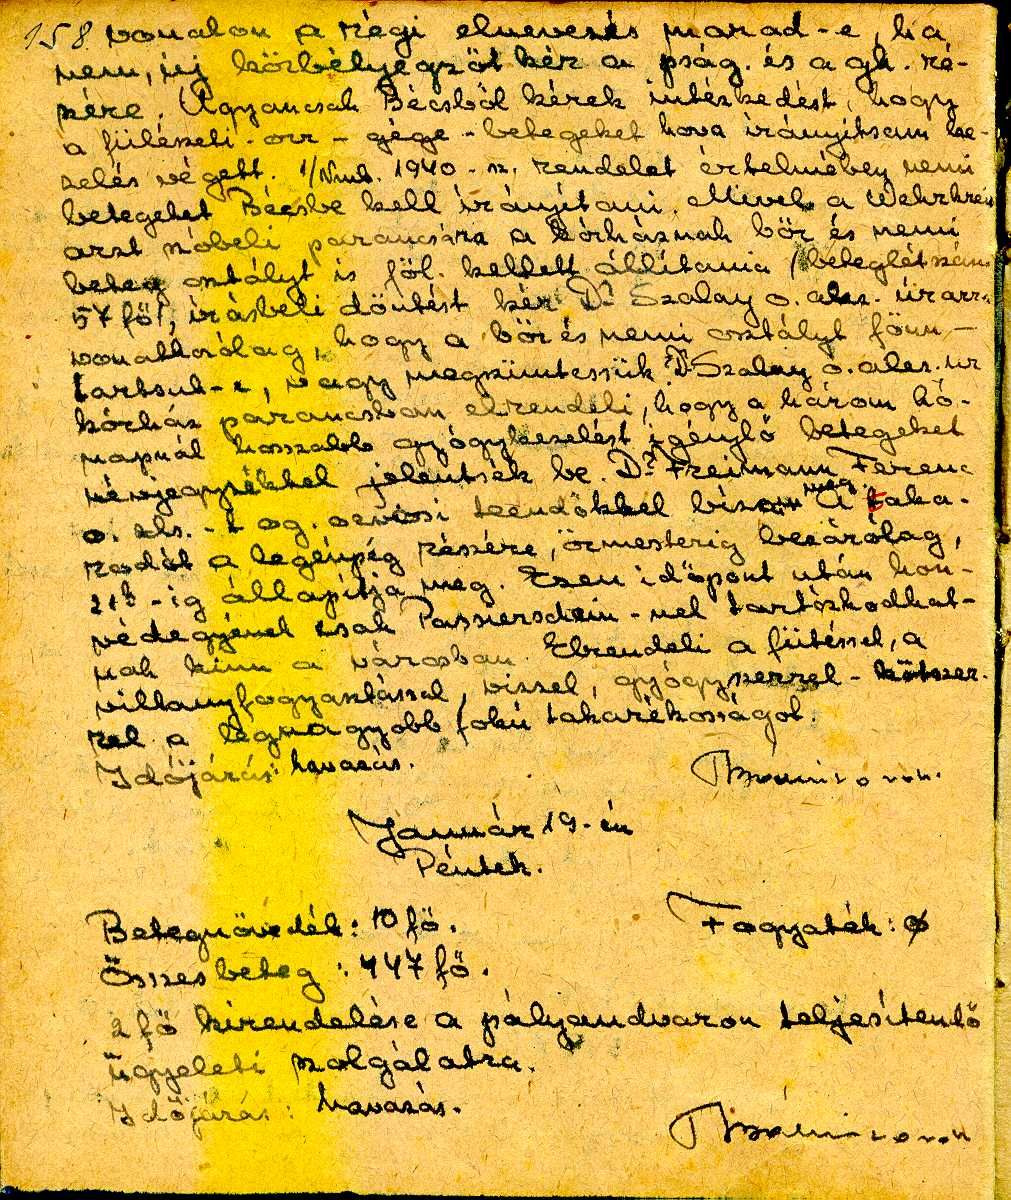 158. vonalon a régi elnevezés marad-e, ha
nem, új körbélyegzőt kér a pság. és a gh. ré-
szére. Ugyancsak Bécsből kérek intézkedést, hogy
a fülészeti-orr-gége-betegeket hova irányítsam ke-
zelés végett. 1940-sz. rendelet értelmében nemi
betegeket Bécsbe kell irányítani. Mivel a Wehrkreis
arzt szóbeli parancsára a kórháznak bőr és nemi
beteg osztályt is föl kellett állítania (beteglétszám
57 fő), írásbeli döntést kér Dr Szalay o. alez. úr arra
vonatkozólag, hogy a bőr és nemi osztályt fönn-
tartsuk-e, vagy megszüntessük. Dr Szalay o. alez. úr
kórház parancsban elrendeli, hogy a három hó-
napnál hosszabb gyógykezelést igénylő betegeket
névjegyzékkel jelentsék be. Dr Freimann Ferenc
o. zls. -t og. orvosi teendőkkel bízom meg. A taka-
rodót a legénység részére, őrmesterig bezárólag,
21h-ig állapítja meg. Ezen időpont után hon-
védegyének csak Passierschein-nel tartózkodhat-
nak kinn a városban. Elrendeli a fűtéssel, a
villanyfogyasztással, vízzel, gyógyszerrel-kötszer-
rel a legnagyobb fokú takarékosságot.
Időjárás: havazás.
Január 19-én
Péntek.
Betegnövedék: 10 fő. Fogyaték: ø
Összes beteg: 447 fő.
2 fő kirendelése a pályaudvaron teljesítendő
ügyeleti szolgálatra.
Időjárás: havazás.